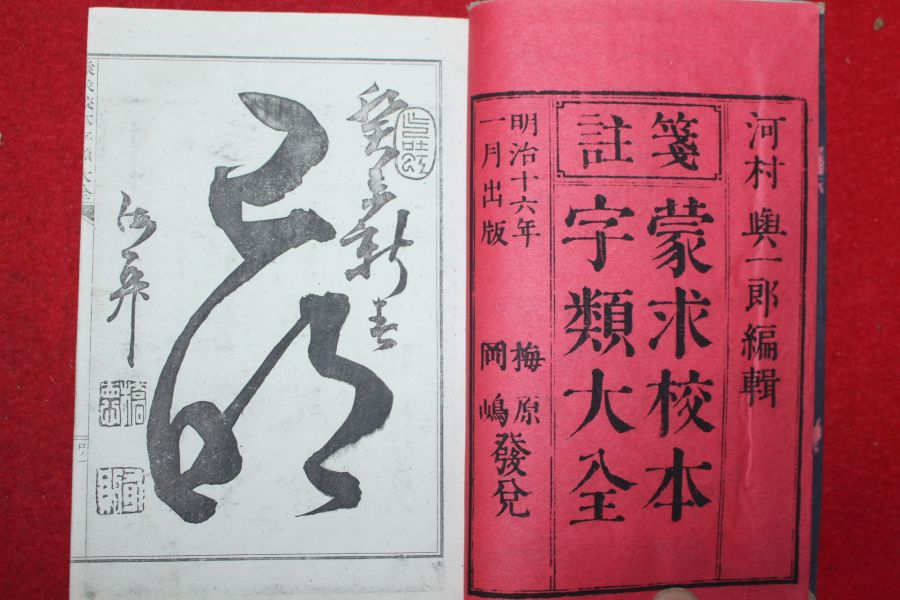 河村與一郎編輯
箋註
蒙求校本
字類大全
明治十六年
一月出版
梅原
岡嶋
發兌
癸未新春